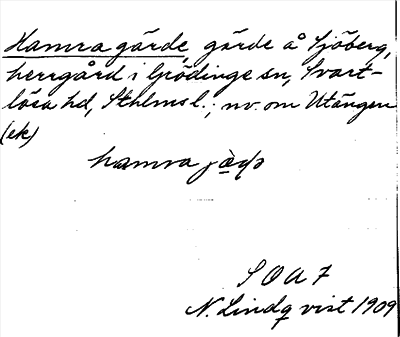 Hamra gärde, gärde å Sjöberg,
herrgård i Grödinge sn, Svart-
lösa hd, Sthlms l.; nv. om Utängen
(ek)
hamra
S O A 7
N. Lindqvist 1909